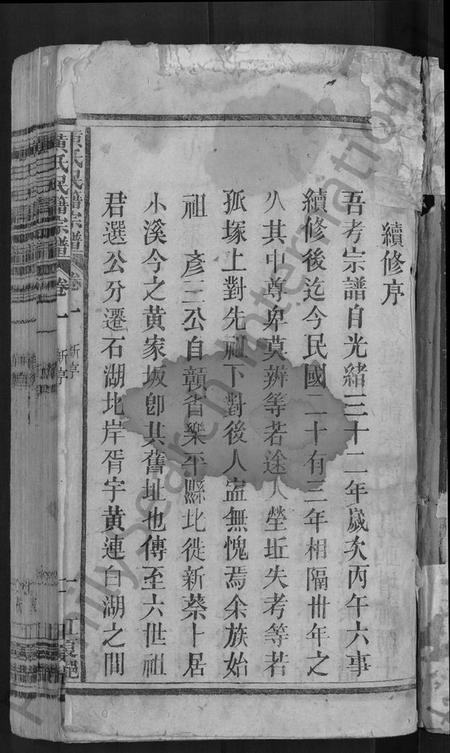 續修序
吾考宗譜自光緒三十二年歲次丙午六事
續修後迄今民國二十有三年相隔卅年之
久其中尊卑莫辨等若途人塋坵失考等若
孤塚上對先祖下對後人寍無愧焉余族始
祖 彥三公自贛省樂平縣北徙新蔡卜居
小溪今之黃家坂卽其舊址也傳至六世祖
君選公分遷石湖北岸胥宇黃連白湖之間
黃氏民譜宗譜 卷一 新亭
黃氏民譜宗譜 卷一 新亭
FamilySearch International